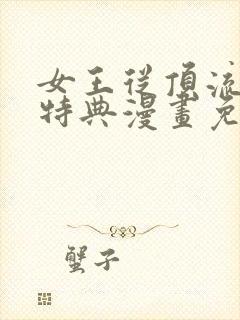 女王從頂流
特典漫畫免
蟹子